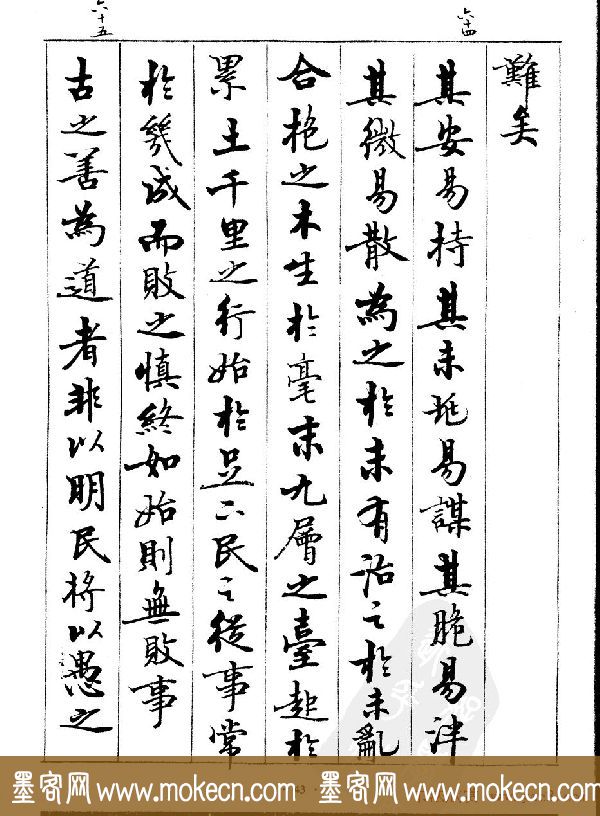 六十四
難矣
其安易持其未兆易謀其脆易泮
其微易散為之於未有治之於未亂
合抱之木生於毫末九層之臺起於
累土千里之行始於足下民之從事常
於幾成而敗之慎終如始則無敗事
六十五
古之善為道者非以明民將以愚之
墨客网 www.mokecn.com 墨客网 www.mokecn.com 墨客网 www.mokecn.com